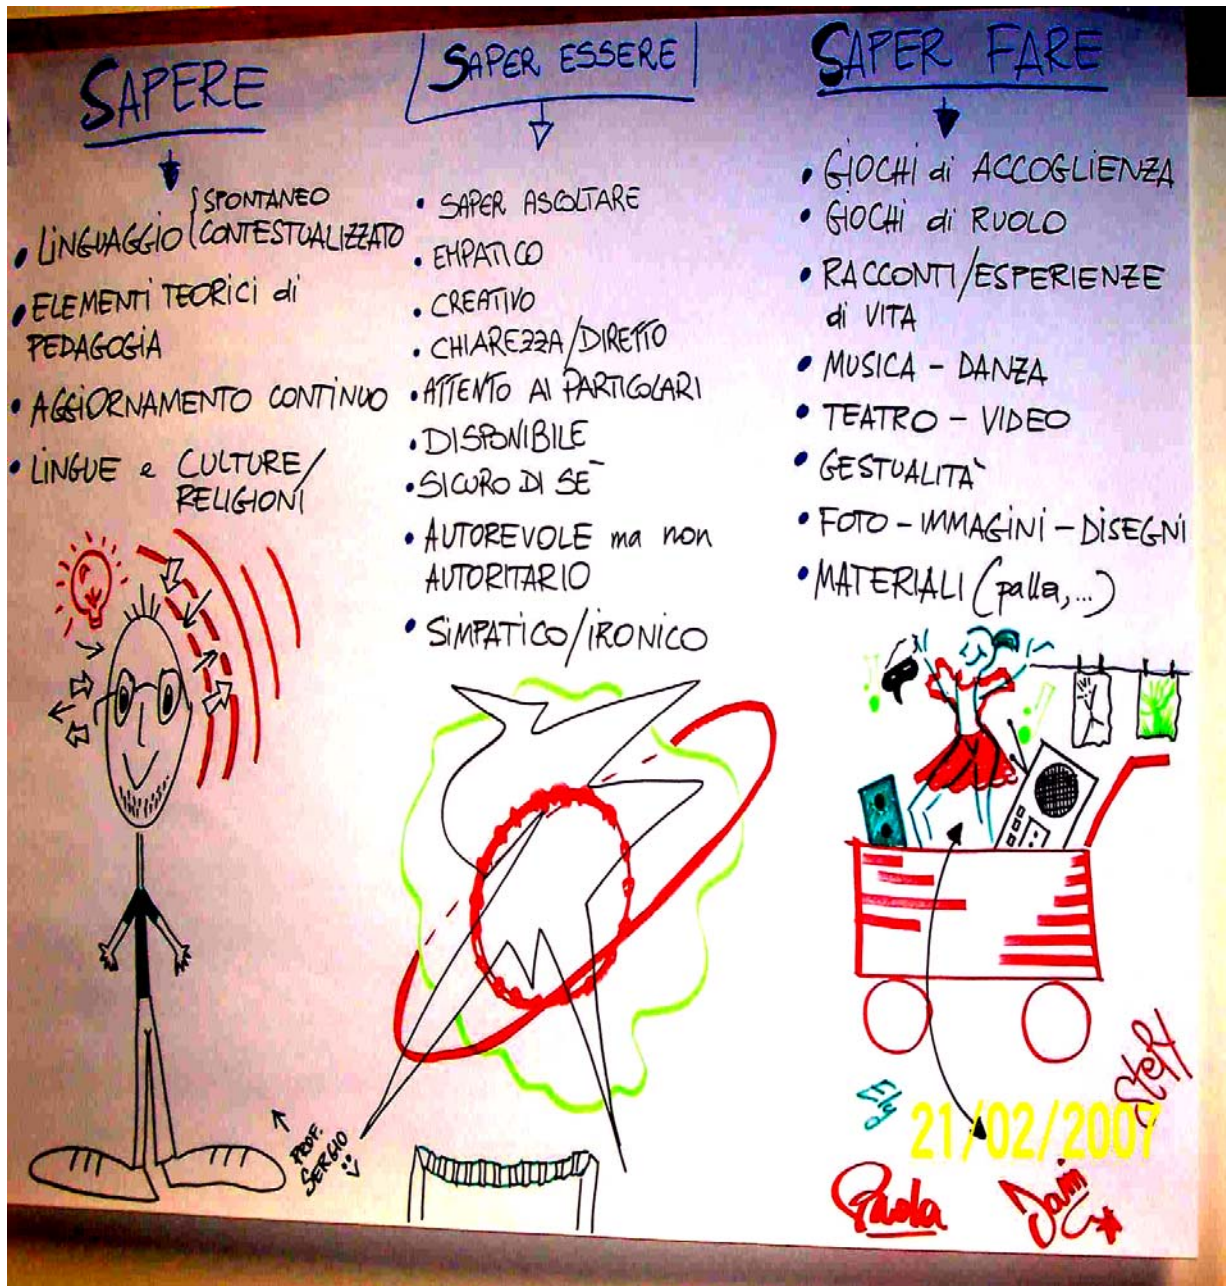 SAPERE
LINGUAGGIO
SPONTANEO
CONTESTUALIZZATO
ELEMENTI TEORICI di
PEDAGOGIA
AGGIORNAMENTO CONTINUO
LINGUE e CULTURE/
RELIGIONI
PROF.
SERGIO
SAPER ESSERE
SAPER ASCOLTARE
EMPATICO
CREATIVO
CHIAREZZA/DIRETTO
ATTENTO AI PARTICOLARI
DISPONIBILE
SICURO DI SE
AUTOREVOLE ma non
AUTORITARIO
SIMPATICO/IRONICO
SAPER FARE
GIOCHI di ACCOGLIENZA
GIOCHI di RUOLO
RACCONTI/ESPERIENZE
di VITA
MUSICA - DANZA
TEATRO - VIDEO
GESTUALITÀ
FOTO - IMMAGINI - DISEGNI
MATERIALI (palla,...)
Stefy
Ely
21/02/2007
Paola